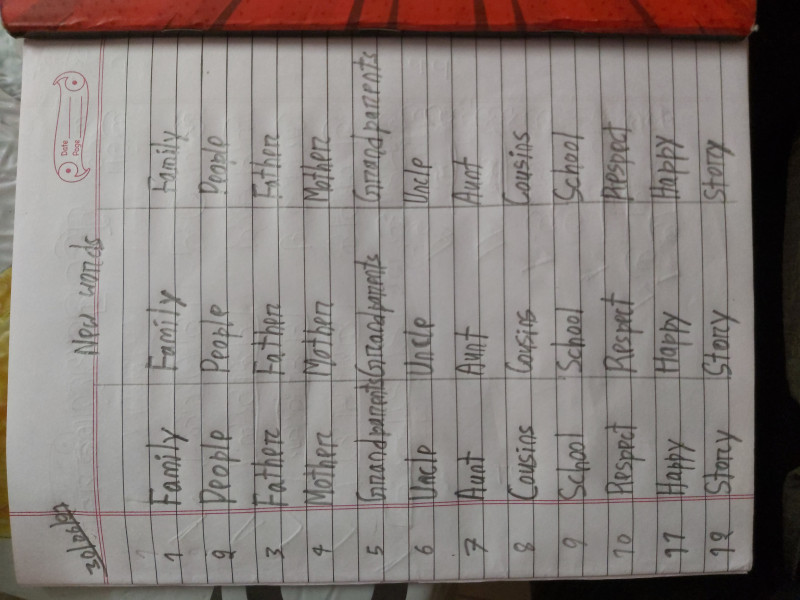 Date
Page
30/06/
New words
1 Family Family Family
2 People People People
3 Father Father Father
4 Mother Mother Mother
5 Grandparents Grandparents Grandparents
6 Uncle Uncle Uncle
7 Aunt Aunt Aunt
8 Cousins Cousins Cousins
9 School School School
10 Respect Respect Respect
11 Happy Happy Happy
12 Story Story Story